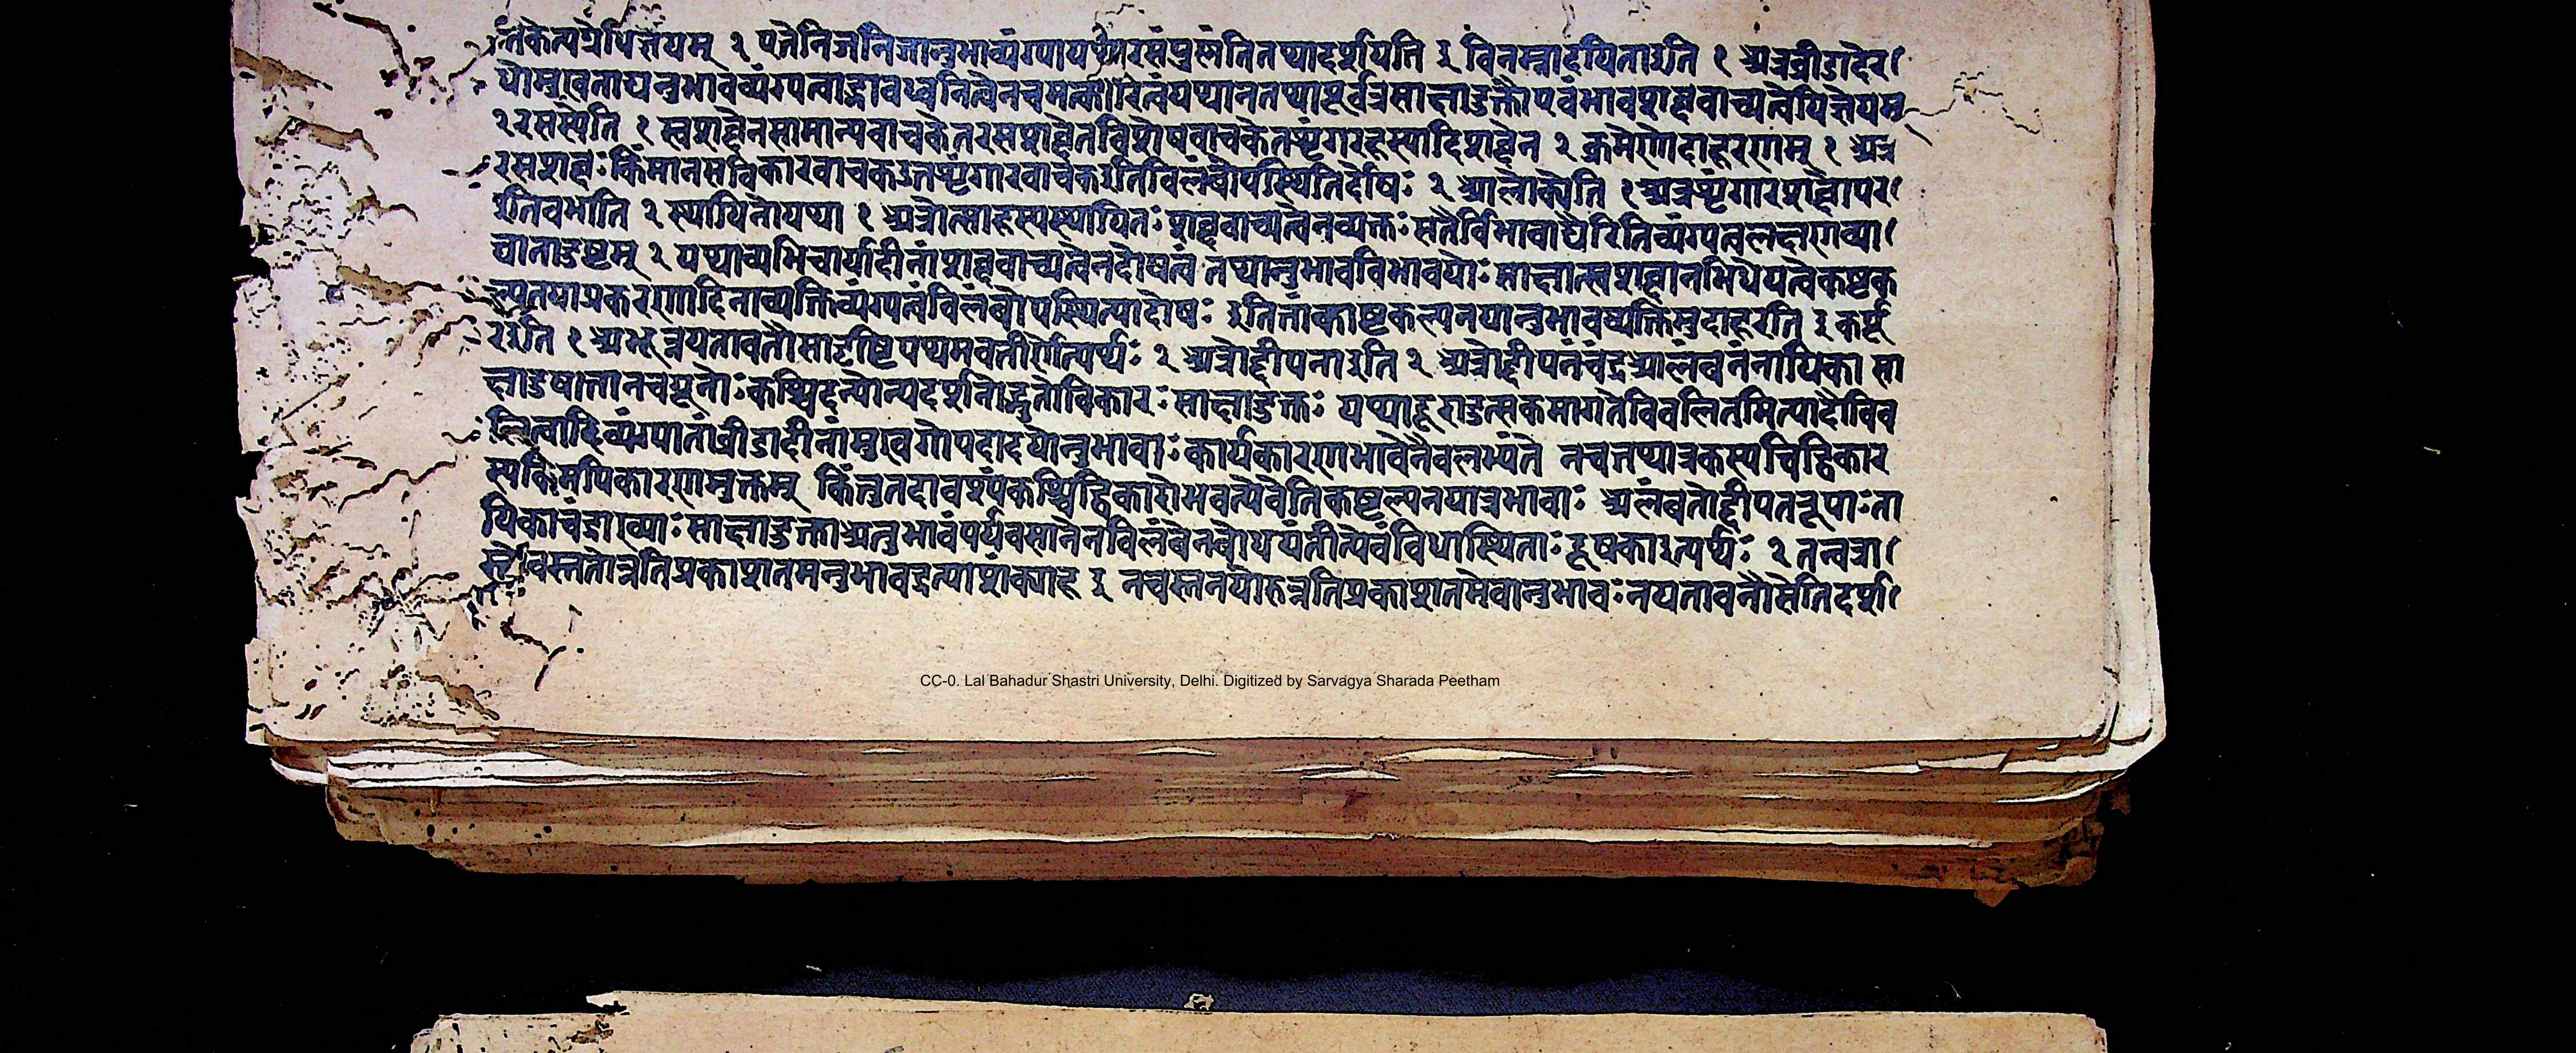 त्तकेत्यग्रेपिज्ञेयम् २ पतेनिजनिजानुभावव्यंग्यायथारसंप्रुसंतितथादर्शयिति ३ विनम्नादयिताइति १ अत्रव्रीडादेर
धोमुखताद्यनुभावव्यंग्यत्वाद्भावध्वनित्वेनचमत्कारित्वंयथानतथाष्टर्वत्रसाक्षादुक्तौएवंभावशब्दवाच्यत्वेपिज्ञेयम्
२ रसस्येति १ स्वशब्देनसामान्यवाचकेनरसशब्देनविशेषवाचकेनशृंगारहास्यादिशब्देन २ क्रमेणोदाहरणम् १ अत्र
रसशब्दः किंमानसविकारवाचकउतशृंगारवाचकइतिविलंबोपस्थितिर्दोषः २ आलोक्येति १ अत्रशृंगारशब्दोपर
इतिवभाति २ स्थायिनोयथा १ अत्रोत्साहस्यस्थायिनः शब्दवाच्यत्वेनव्यक्तः सतैर्विभावाद्यैरितिव्यंग्यत्वलक्षणव्या
घाताद्दुष्टम् २ यथाव्यभिचार्यादीनांशब्दवाच्यत्वेनदोषत्वं तथानुभावविभावयोः साक्षात्स्वशब्दानभिधेयत्वेकष्टक
ल्पनयाप्रकरणादिनाव्यक्तिव्यंग्यत्वंविलंबोपस्थित्यादोषः इतितांकाष्टकल्पनयानुभावव्यक्तिमुदाहरति ३ कर्पू
रइति १ अभून्नयतावतौसादृष्टिपथमवतीर्णेत्यर्थः २ अत्रोद्दीपनाइति २ अत्रोद्दीपनंचंद्रआलंबनंनायिका सा
क्षादुपात्तानचयूनोः कश्चिदन्योन्यदर्शनोद्भूतोविकारः साक्षादुक्तः यथादूरादुत्सकमागतेविवलितमित्यादौविव
लित्वादिव्यंग्यानांव्रीडादीनांमुखगोपदादयोनुभावाः कार्यकारणभावेनैवलभ्यंते नचतथात्रकस्यचिद्विकार
स्यकिमपिकारणमुक्तम् किंतुतदावश्यंकश्चिद्विकारोभवत्येवेतिकष्टल्पनयात्रभावाः अलंबतोद्दीपतरूपाः ना
यिकाचंद्राख्याः साक्षादुक्ताअनुभावंपर्यवसानेनविलंबेनबोधयंतीत्येवंविधास्थिताः दूषकाइत्यर्थः २ तन्वत्रा
स्त्येवस्तनोन्नतिप्रकाशतमनुभावइत्याशंक्याह ३ नचस्तनयोरुन्नतिप्रकाशतमेवानुभावः नयतावनौसेतिदर्श
CC-0. Lal Bahadur Shastri University, Delhi. Digitized by Sarvagya Sharada Peetham